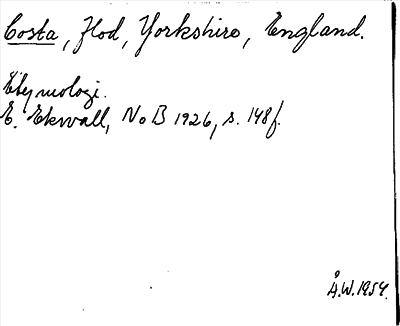 Costa, flod, Yorkshire, England.
Etymologi.
E. Ekwall, NoB 1926, s. 148f.
Å.W. 1954.